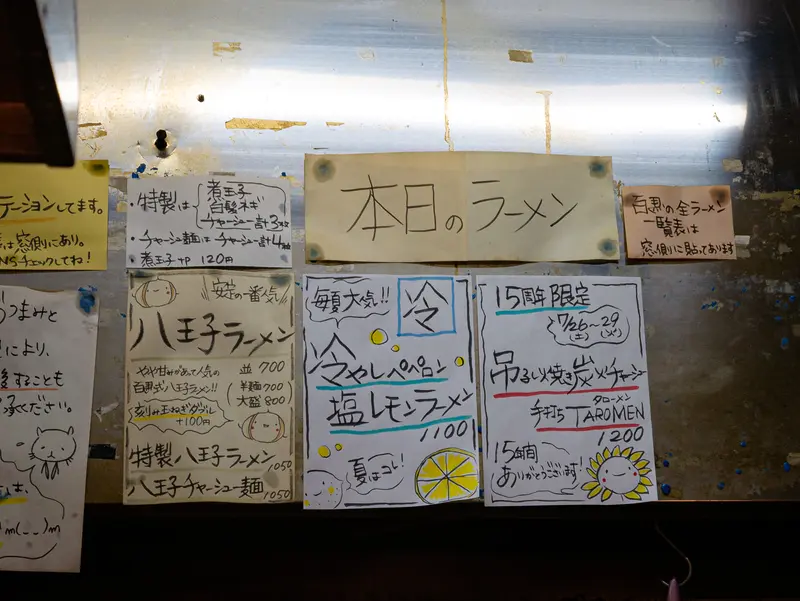 テーションしてます。
は窓側にあり。
NSチェックしてね!
・特製は
煮玉子
白髪ネギ
チャーシュー計3枚
・チャーシュー麺はチャーシュー計4枚
・煮玉子 TP 120円
本日のラーメン
の全ラーメン
一覧表は
窓側に貼ってあります
つまみと
により、
することも
承ください。
m(__)m
安定の一番人気!!
八王子ラーメン
やや甘みがあって人気の
八王子ラーメン!!
刻み玉ねぎダブル
+100円
並 700
半麺 700
大盛 800
特製八王子ラーメン
1050
八王子チャーシュー麺 1050
毎夏大人気!!
冷
冷やしペペロン
塩レモンラーメン
1100
夏はコレ!
15周年限定
7/26~29
(土) (火)
吊るし焼き炭火チャーシュー
タローメン
手打ち TAROMEN
1200
15年間
ありがとうございます!